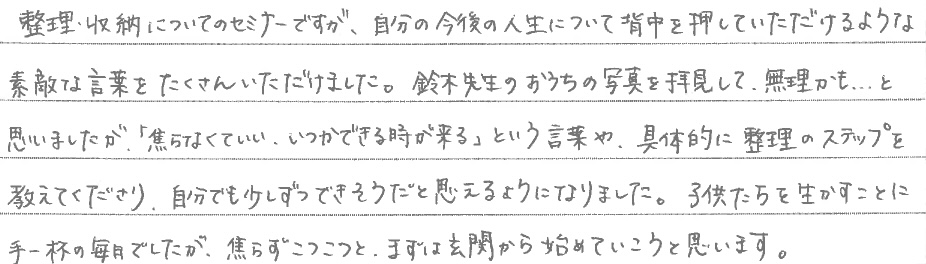 整理・収納についてのセミナーですが、自分の今後の人生について背中を押していただけるような
素敵な言葉をたくさんいただけました。鈴木先生のおうちの写真を拝見して、無理かも…と
思いましたが、「焦らなくていい、いつかできる時が来る」という言葉や、具体的に整理のステップを
教えてくださり、自分でも少しずつできそうだと思えるようになりました。子供たちを生かすことに
手一杯の毎日でしたが、焦らずこつこつと、まずは玄関から始めていこうと思います。